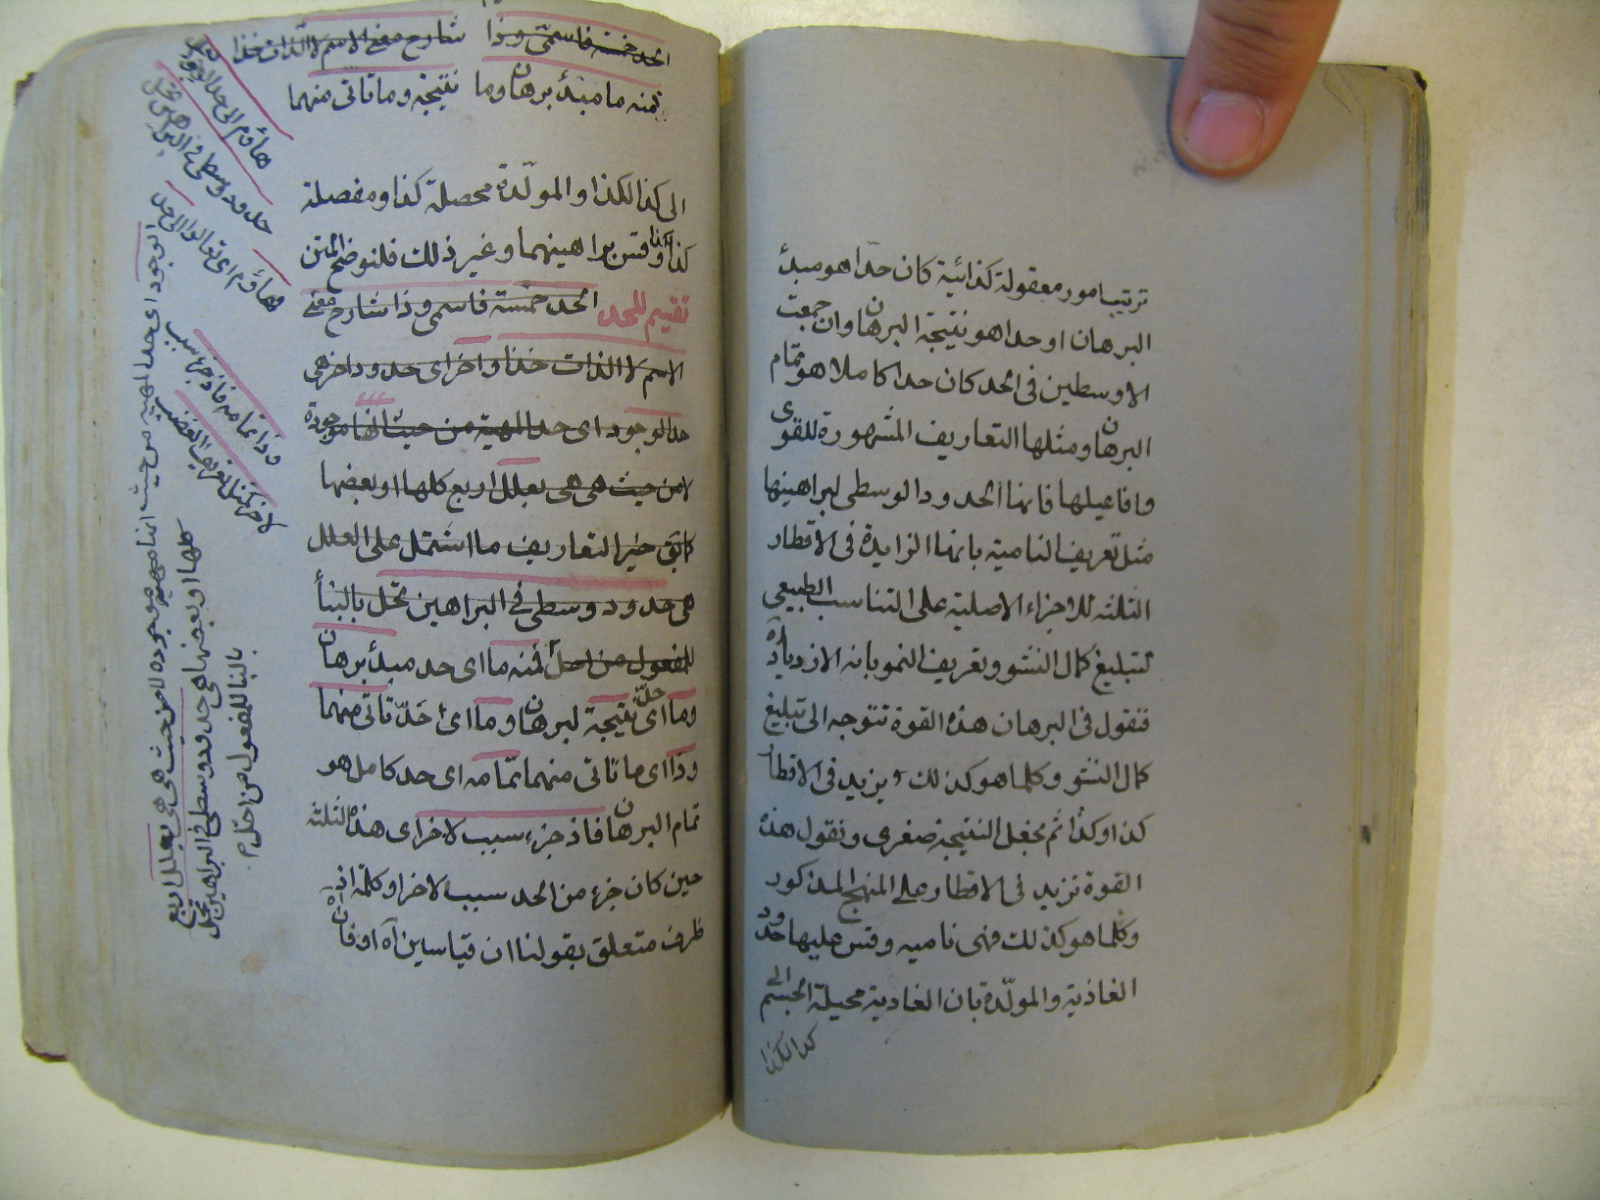 ترتيب امور معقولة كذائية كان حدّا هو مبدأ
البرهان او حدا هو نتيجة البرهان وان جمعت
الاوسطين فى الحد كان حدا كاملا هو تمام
البرهان ومثلها التعاريف المشهورة للقوى
وافاعيلها فانها الحدود الوسطى لبراهينها
مثل تعريف النامية بانها الزايدة فى الاقطار
الثلثه للاجزاء الاصلية على التناسب الطبيعى
لتبليغ كمال النشو وتعريف النمو بانه الازدياد
فنقول فى البرهان هذه القوة تتوجه الى تبليغ
كمال النشو وكلما هو كذلك يزيد فى الاقطار
كذا وكذا ثم نجعل النتيجة صغرى ونقول هذه
القوة تزيد فى الاقطار على المنهج المذكور
وكلما هو كذلك فهى ناميه وقس عليها حدود
الغاذية والمولّدة بان الغاذية محيلة الجسم
كذا لكذا
الحد خمسة فاسمىّ وذا شارح معنى الاسم لا الذات خذا
فمنه ما مبدأ برهان وما نتيجة وما تاتى منهما
الى كذا لكذا والمولّدة محصلة كذا ومفصلة
كذا وكذا وقس براهينهما وغير ذلك فلنوضح المتن
تقسيم للحد الحد خمسة فاسمى وذا شارح معنى
الاسم لا الذات خذا واخر اى حدود اخر هى
حد الوجود اى حد المهية من حيث انها موجودة
لا من حيث هى هى بعلل اربع كلها او بعضها
خير التعاريف ما اشتمل على العلل
هى حدود وسطى فى البراهين تحل بالبناء
للمفعول من احل فمنه ما اى حد مبدأ برهان
وما اى حدّ نتيجة لبرهان وما اى حَدّ تاتى منهما
وذا اى ما تاتى منهما تمامه اى حد كامل هو
تمام البرهان فاذ جزء سبب لاخر اى هذه الثلثة
حين كان جزء من الحد سبب لاخر او كلمة اذ
ظرف متعلق بقولنا ان قياسين آه او فان
هاؤم الى حد الوجود
حدود وسطى فى البراهين تحل
هاؤم اى تعالوا الى حد
الوجود اى حد المهية من حيث انها مهية موجوده لا من حيث هى هى بعلل اربع
كلها او بعضها هى حدود وسطى فى البراهين تحل
بالبنا للمفعول من احل م
وذا تمامه فاذ جزء سبب
لاخر كمثل تعريف الغضب